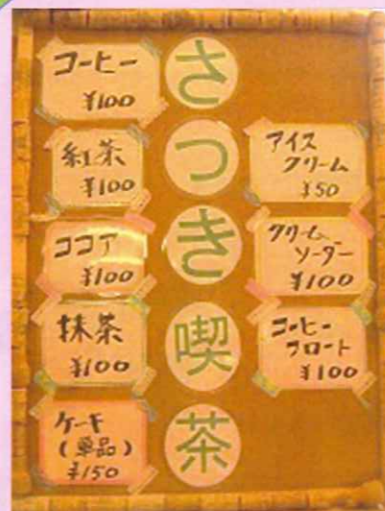 さつき喫茶
コーヒー
¥100
紅茶
¥100
ココア
¥100
抹茶
¥100
ケーキ
(単品)
¥150
アイス
クリーム
¥50
クリーム
ソーダー
¥100
コーヒー
フロート
¥100